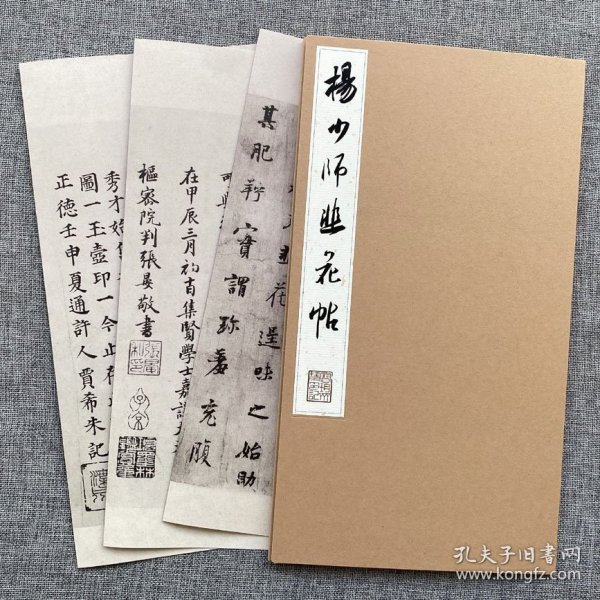 楊少師韭花帖
其肥羜實謂珍羞充腹
韭花逞味之始助
在甲辰三月初吉集賢學士嘉議大
樞密院判張晏敬書
秀才始
圖一玉壺印一今止存
正德壬申夏通許人賈希朱記
孔夫子旧書网
www.kongfz.com